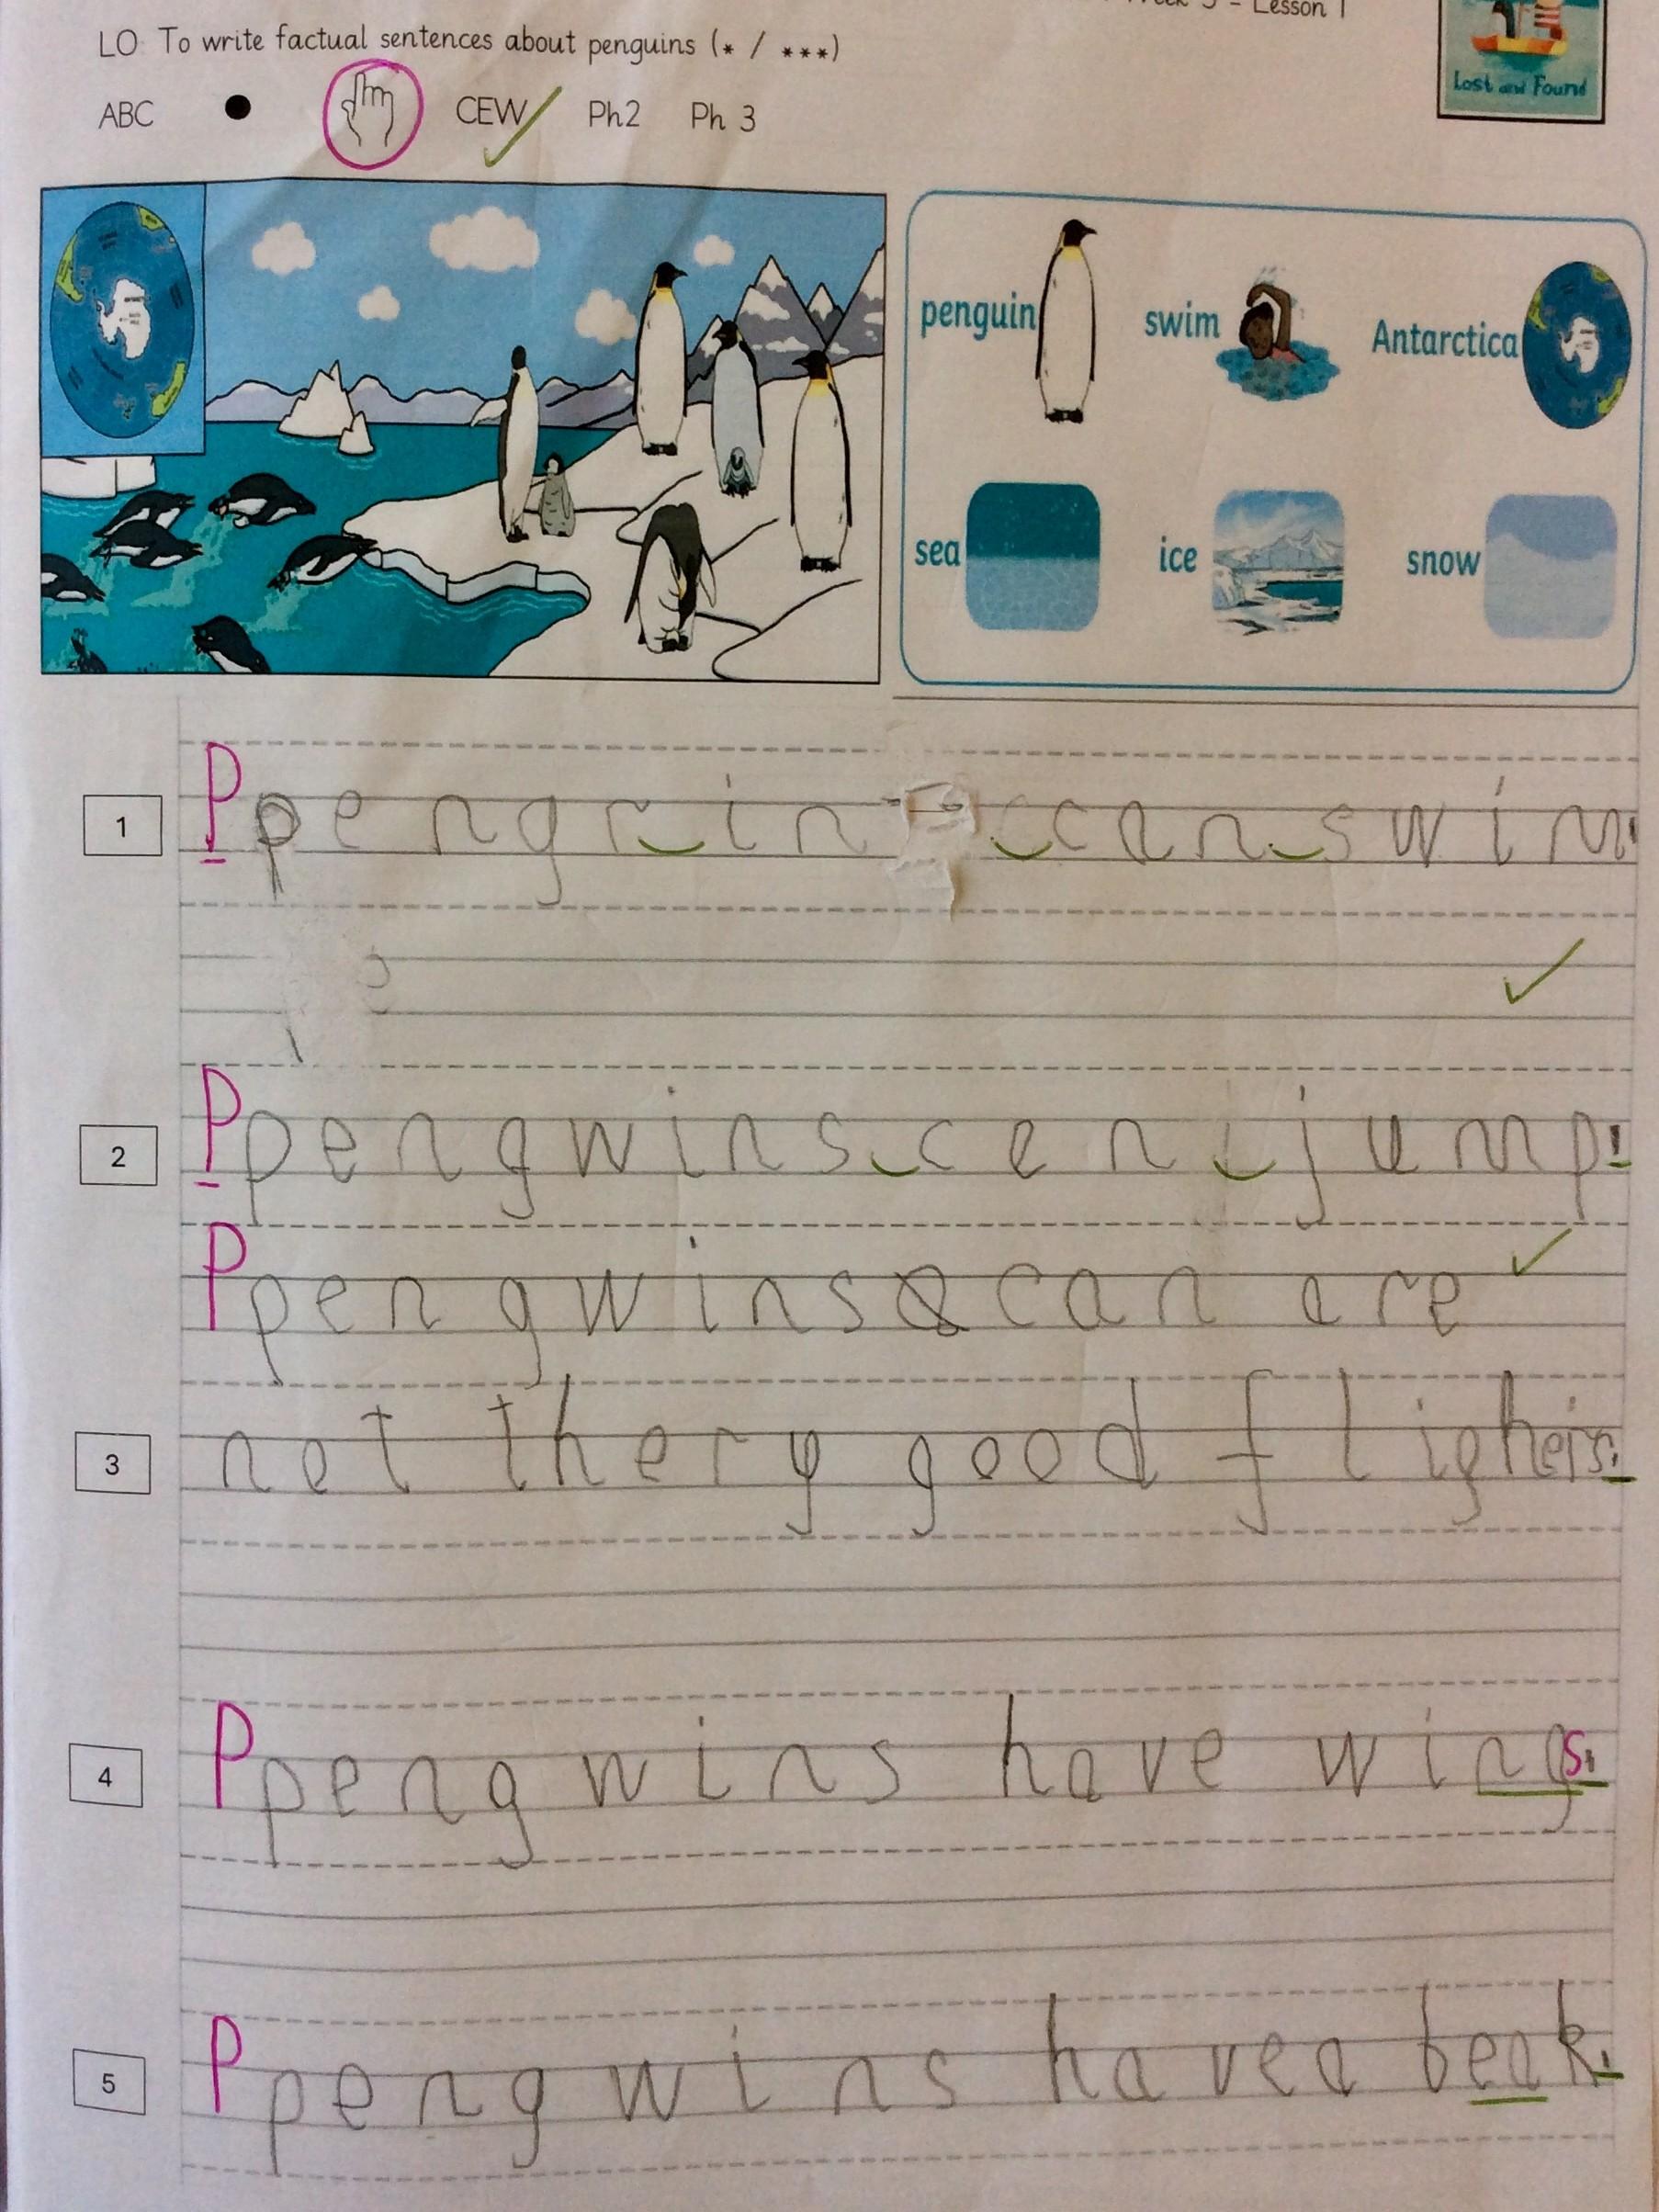 Lesson 1
LO To write factual sentences about penguins (* / ***)
Lost and Found
ABC ● CEW Ph2 Ph 3
penguin swim Antarctica
sea ice snow
1 P pengrin can swim.
2 P pengwins cen jump!
P pengwins can are
3 not thery good fligheirs.
4 P pengwins have wings.
5 P pengwins have a beak.